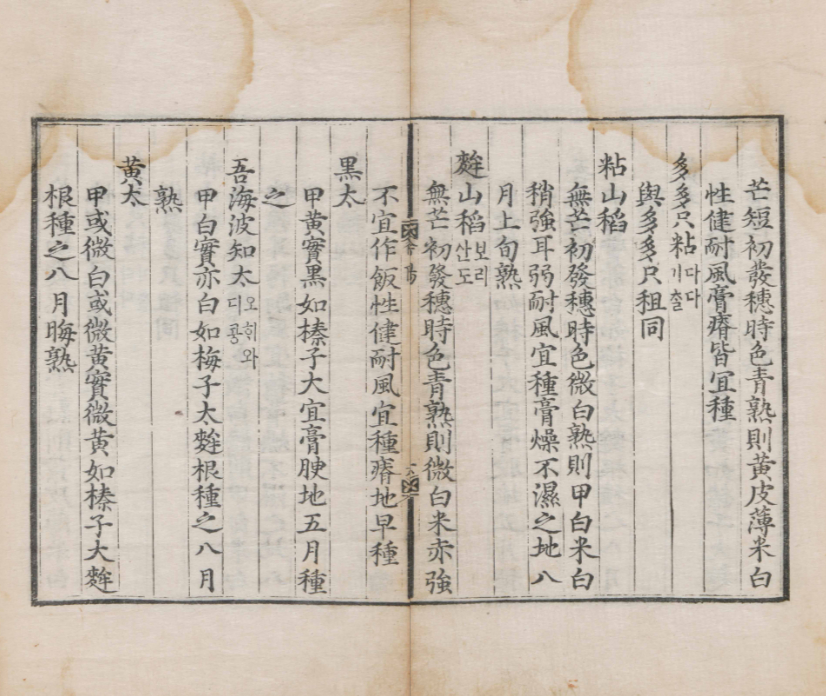 芒短初發穗時色青熟則黃皮薄米白
性健耐風膏瘠皆宜種
多多只粘다다기출
與多多只租同
粘山稻
無芒初發穗時色微白熟則甲白米白
稍強耳弱耐風宜種膏燥不濕之地八
月上旬熟
麰山稻보리산도
無芒初發穗時色青熟則微白米赤強
不宜作飯性健耐風宜種瘠地早種
黑太
甲黃實黑如榛子大宜膏腴地五月種
之
吾海波知太오ᄒᆡ와디콩
甲白實亦白如梅子太麰根種之八月
熟
黃太
甲或微白或微黃實微黃如榛子大麰
根種之八月晦熟